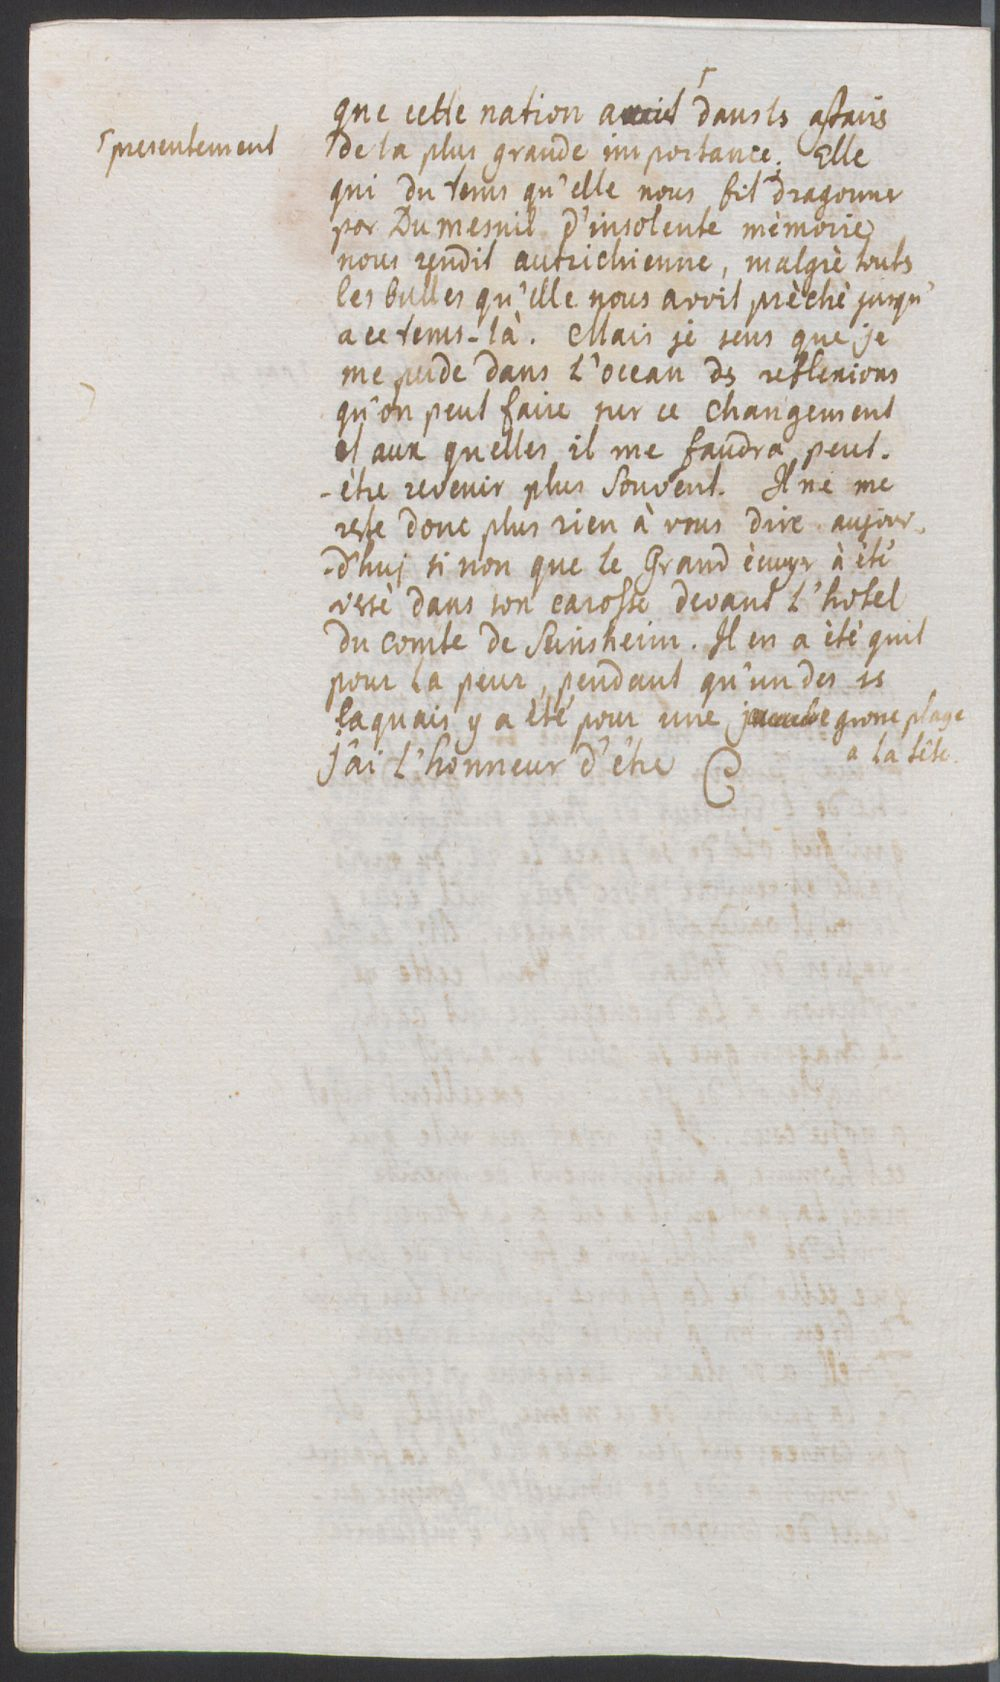 que cette nation avait ⌈ dans ls affairs
⌈presentement
de la plus grande importance. Elle
qui du tems qu'elle nous fit dragonner
par Dumesnil d'insolente mémoire
nous rendit autrichienne, malgrè touts
les bulles qu'elle nous avoit prèchè jusqu'
a ce tems-là. Mais je sens que je
me perde dans l'ocean ds reflexions
qu'on peut faire sur ce changement
et aux quelles il me faudra peut-
-ètre revenir plus souvent. Il ne me
reste donc plus rien à vous dire aujour-
-d'huj si non que le Grand ècuyer à èté
versè dans son carosse devant l'hotel
du comte de Seinsheim. Il en a èté quit
pour la peur, pendant qu'un des ss
laquais y a èté pour une grosse playe
a la tête.
j'ai l'honneur d'ètre